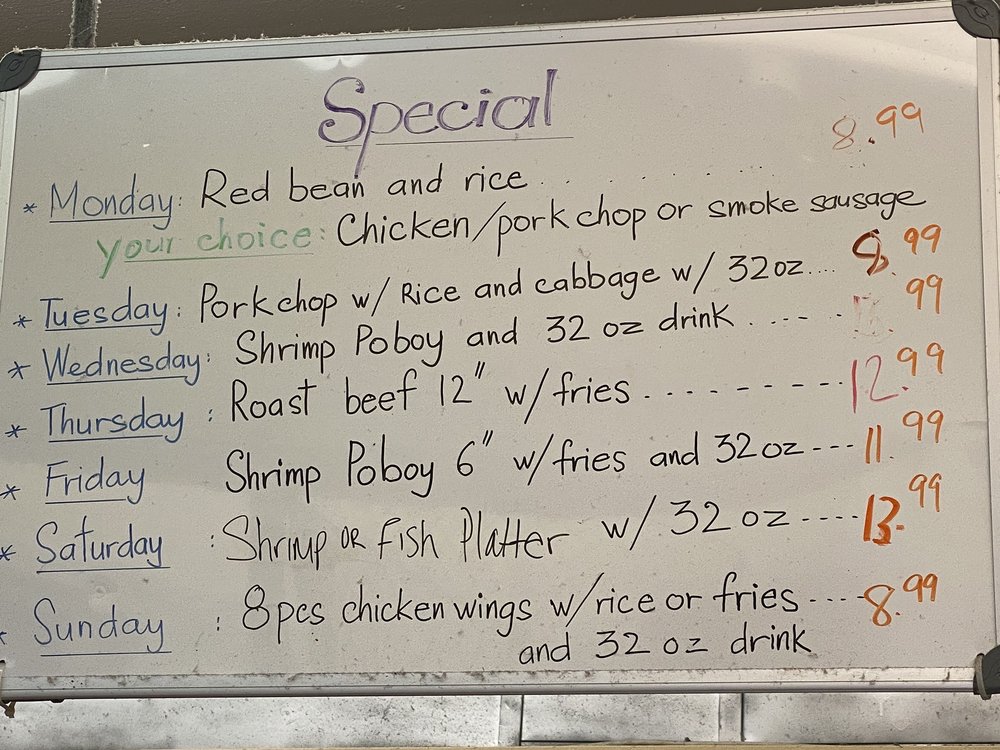 Special
8.99
* Monday: Red bean and rice . . . . . . . .
your choice: Chicken/pork chop or smoke sausage
* Tuesday: Porkchop w/ Rice and cabbage w/ 32oz.... .99
* Wednesday: Shrimp Poboy and 32 oz drink .---- .99
* Thursday : Roast beef 12" w/fries . - - - - - - - - 12.99
* Friday Shrimp Poboy 6" w/fries and 32oz --- 11.99
* Saturday : Shrimp OR Fish Platter w/ 32 oz ---- 13.99
* Sunday : 8pcs chicken wings w/rice or fries ---- 8.99
and 32 oz drink